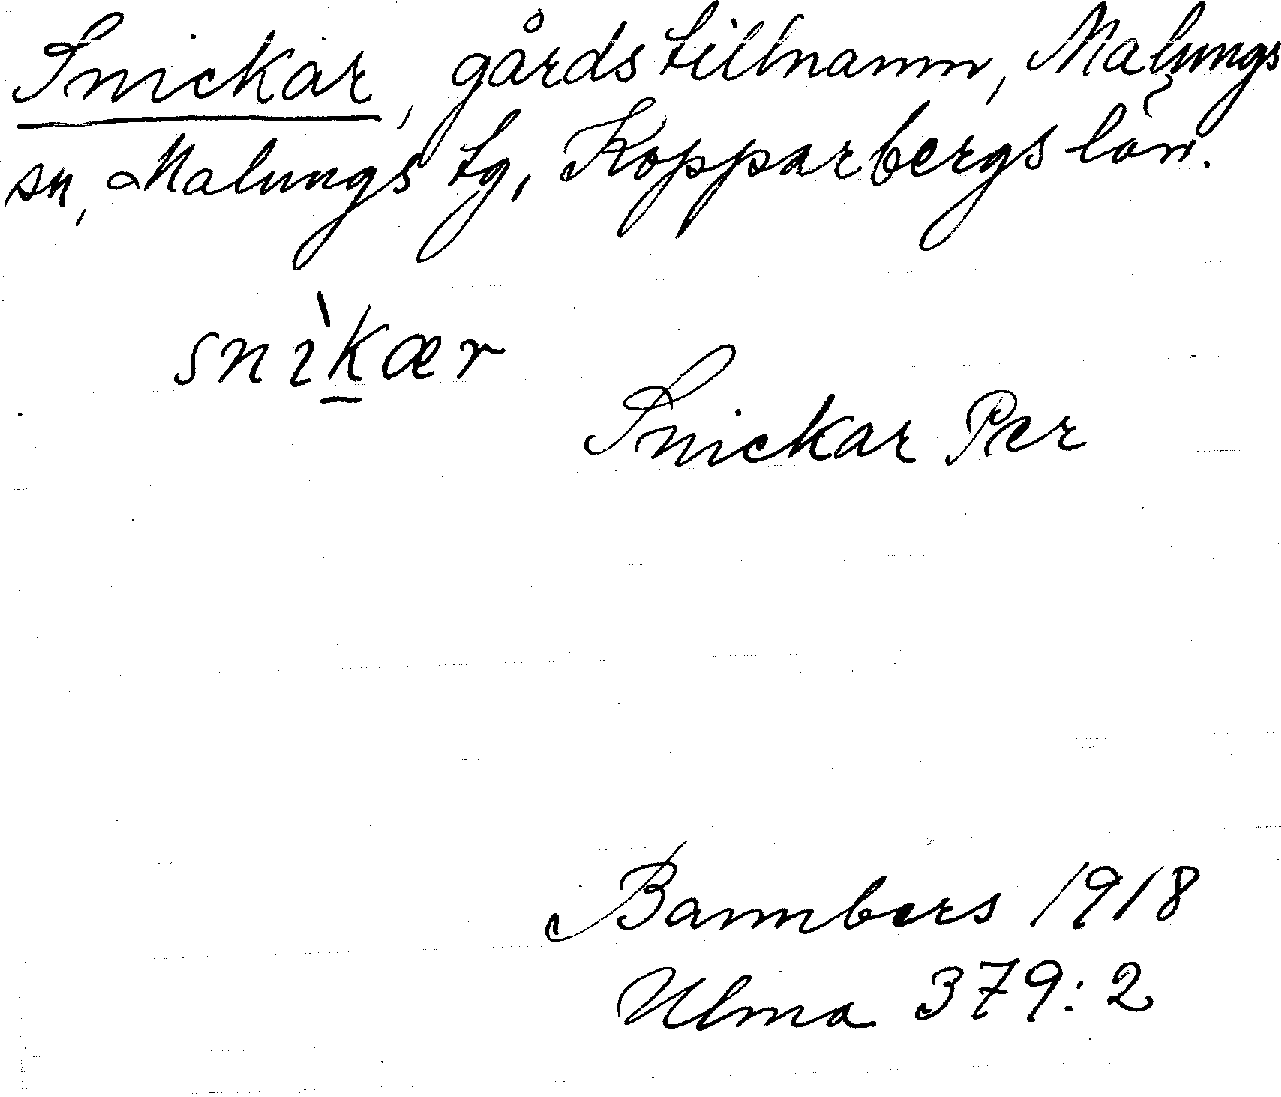 Snickar, gårdstillnamn, Malungs
sn, Malungs tg, Kopparbergs län.
snìk̲ær
Snickar Per
Bannbers 1918
Ulma 379:2